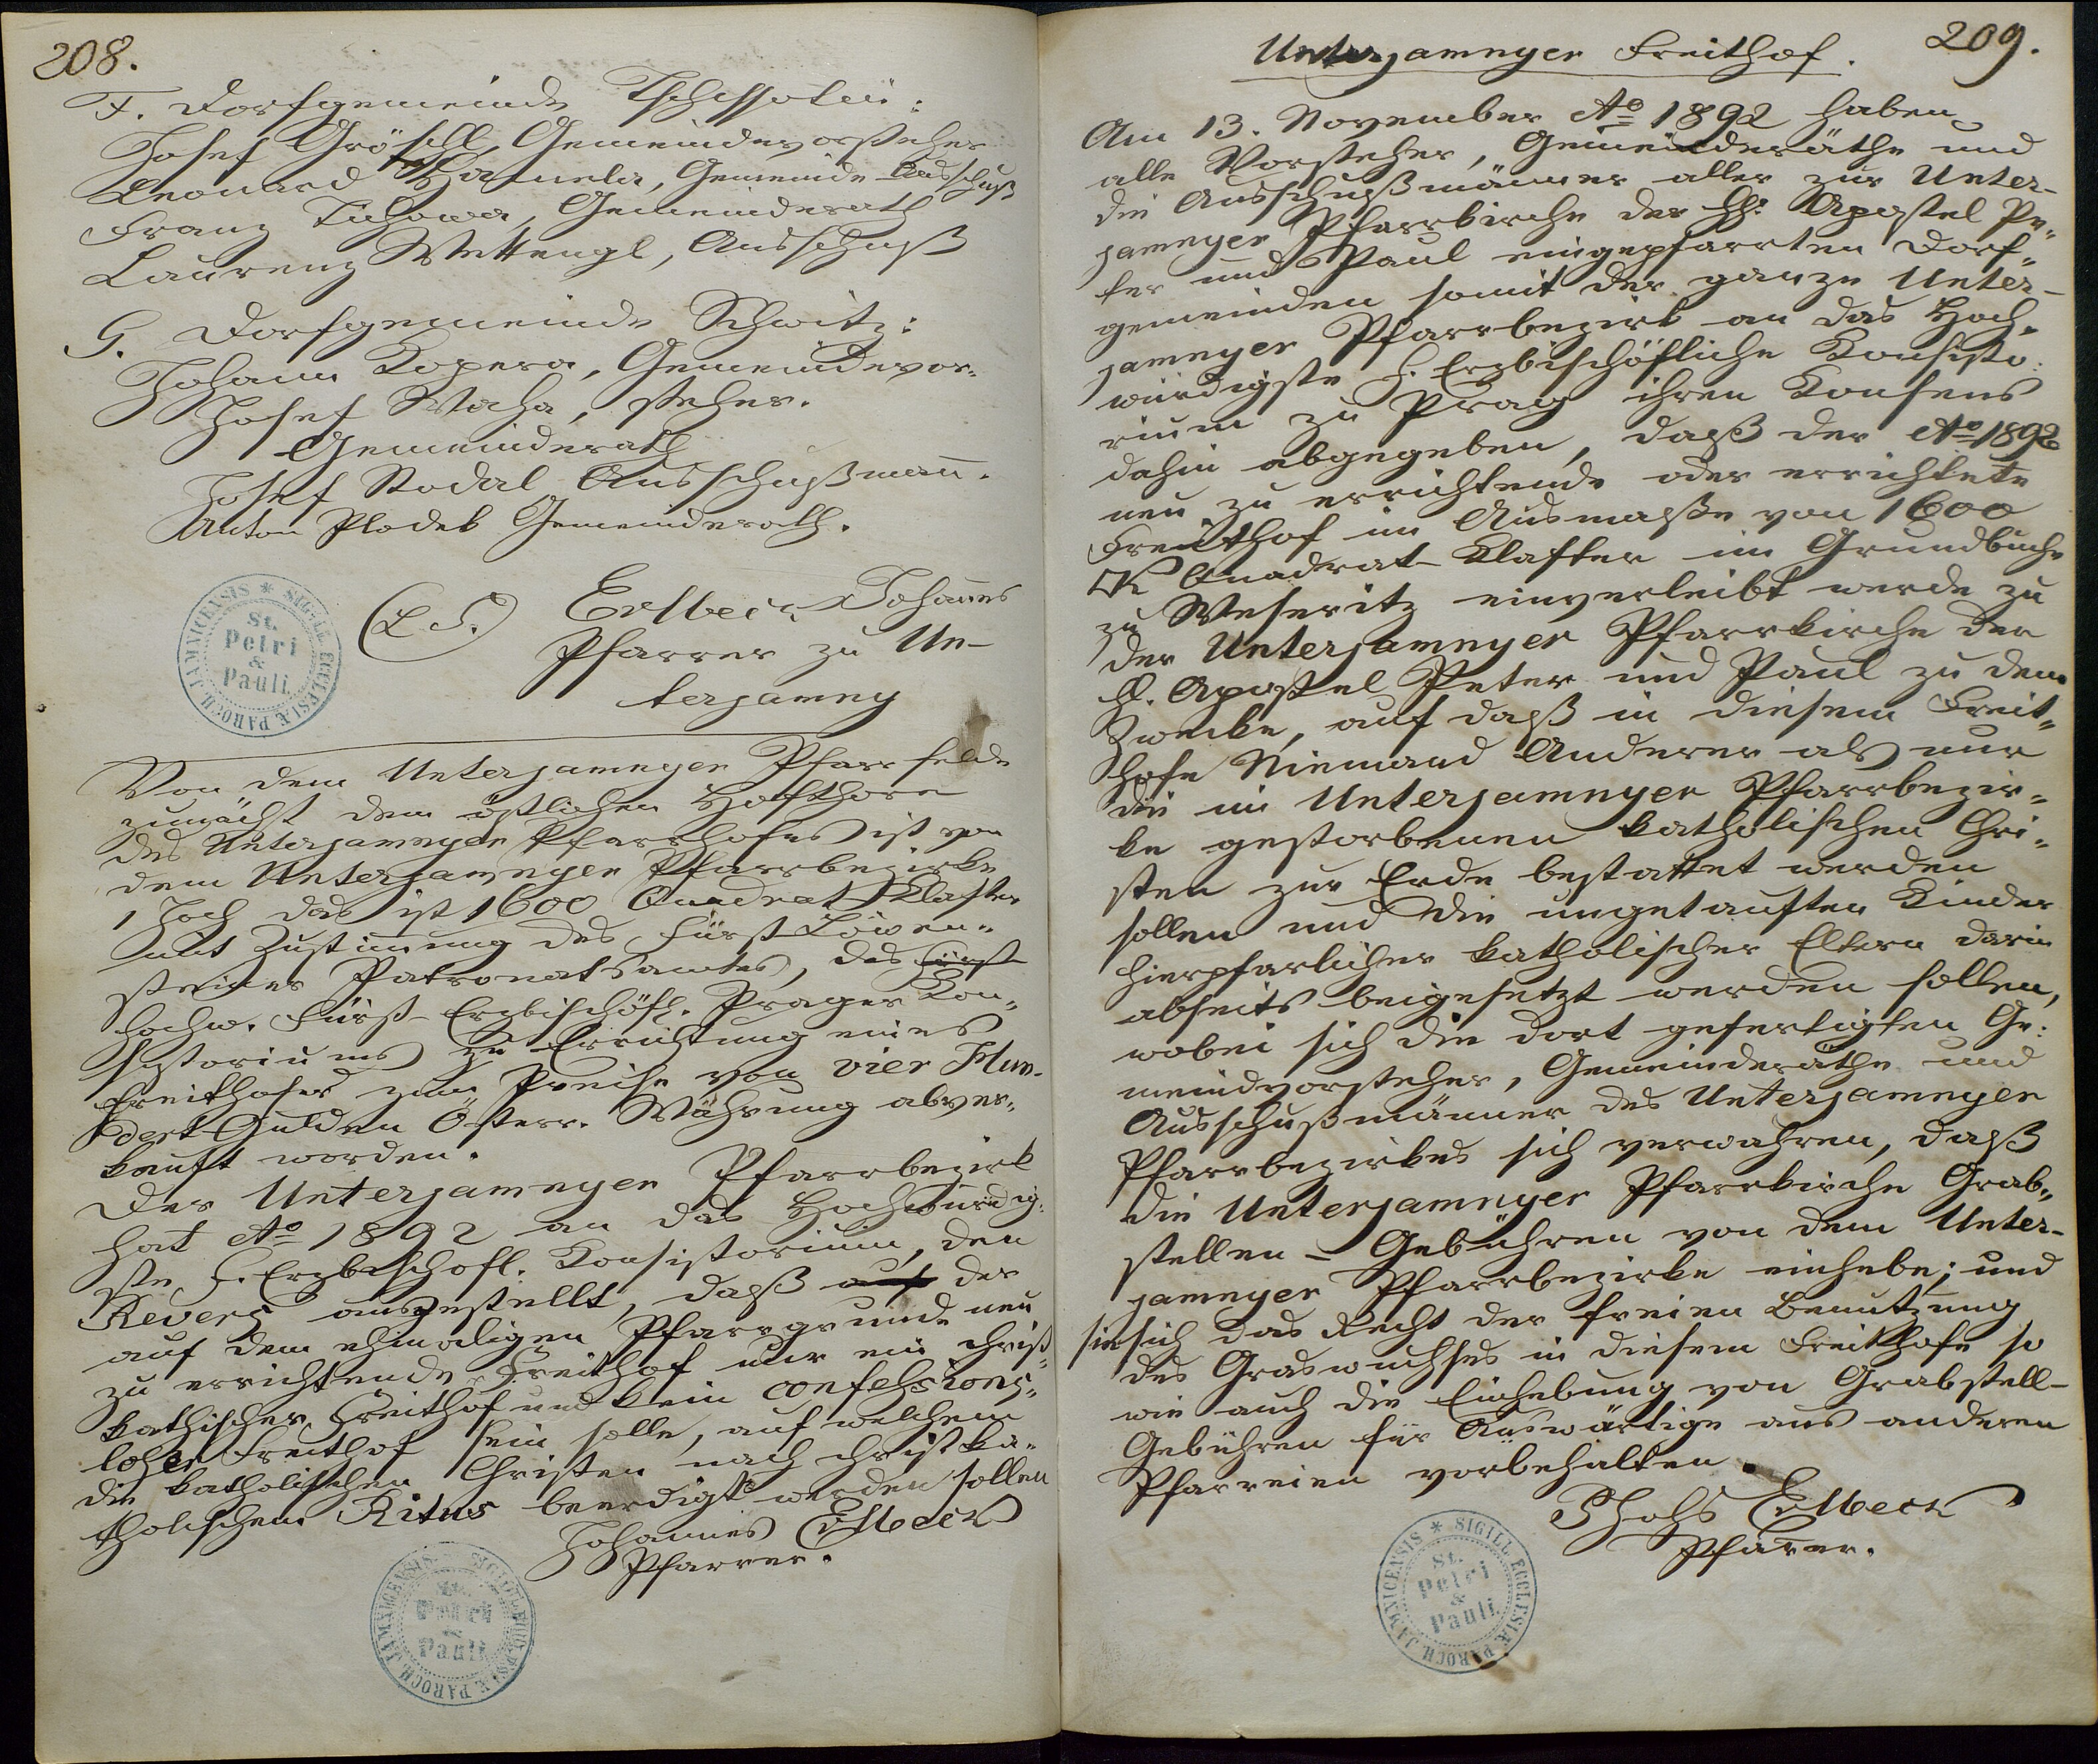 208.
F. Dorfgemeinde Tschissotin:
Josef Grösell, Gemeindevorsteher
Leonard Hamela, Gemeinde-Ausschuß
Franz Tichowa, Gemeinderath
Laurenz Wettengl, Ausschuß
G. Dorfgemeinde Schwitz:
Johann Kopera, Gemeindevor-
Josef Macha, steher.
Gemeinderath
Josef Rodal Ausschußmann.
Anton Plodek Gemeinderath.
(L. S.) Erlbeck Johannes
Pfarrer zu Un-
terjamny
SIGILL. ECCLESIÆ PAROCH. JAMNICENSIS
St.
Petri
&
Pauli
Von dem Unterjamnyer Pfarrfelde
zunächst dem östlichen Hofthore
des Unterjamnyer Pfarrhofes ist von
dem Unterjamnyer Pfarrbezirke
1 Joch das ist 1600 Quadrat Klafter
mit Zustimmung des Fürst Löwen-
steiner Patronatsamtes, des Fürst
hochw. Fürst-Erzbischöfl. Prager Kon-
sistoriums zu Errichtung eines
Freithofes zum Preise von vier Hun-
dert Gulden Österr. Währung abver-
kauft worden.
Der Unterjamnyer Pfarrbezirk
hat Ao 1892 an das Hochwürdig-
ste F. Erzbischöfl. Konsistorium, den
Revers ausgestellt, daß auf der
auf dem ehmaligen Pfarrgrunde neu
zu errichtende Freithof nur ein christ-
kathischer Freithof und kein confessions-
loser Freithof sein solle, auf welchem
die katholischen Christen nach christka-
tholischem Ritus beerdigt werden sollen
Johannes Erlbeck
Pfarrer.
SIGILL. ECCLESIÆ PAROCH. JAMNICENSIS
St.
Petri
&
Pauli
209.
Unterjamnyer Freithof.
Am 13. November Ao 1892 haben
alle Vorsteher, Gemeinderäthe und
die Ausschußmänner aller zur Unter-
jamnyer Pfarrkirche der hh. Apostel Pe-
ter und Paul eingepfarrten Dorf-
gemeinden somit der ganze Unter-
jamnyer Pfarrbezirk an das Hoch-
würdigste F. Erzbischöfliche Konsisto-
rium zu Prag ihren Konsens
dahin abgegeben, daß der Ao 1892
neu zu errichtende oder errichtete
Freithof im Ausmaße von 1600
Quadrat-Klafter im Grundbuche
zu Weseritz einverleibt werde zu
der Unterjamnyer Pfarrkirche der
hl. Apostel Peter und Paul zu dem
Zwecke, auf daß in diesem Freit-
hofe Niemand Anderer als nur
die im Unterjamnyer Pfarrbezir-
ke gestorbenen katholischen Chri-
sten zur Erde bestattet werden
sollen und die ungetauften Kinder
hierpfarrlicher katholischer Eltern darin
abseits beigesetzt werden sollen,
wobei sich die dort gefertigten Ge-
meindvorsteher, Gemeinderäthe und
Ausschußmänner des Unterjamnyer
Pfarrbezirkes sich verwahren, daß
die Unterjamnyer Pfarrkirche Grab-
stellen-Gebühren von dem Unter-
jamnyer Pfarrbezirke einhebe; und
sie sich das Recht der freien Benutzung
des Graswuchses in diesem Freithofe so
wie auch die Einhebung von Grabstell-
Gebühren für Auswärtige aus anderen
Pfarreien vorbehalten.
Johs Erlbeck
Pfarrer.
SIGILL. ECCLESIÆ PAROCH. JAMNICENSIS
St.
Petri
&
Pauli